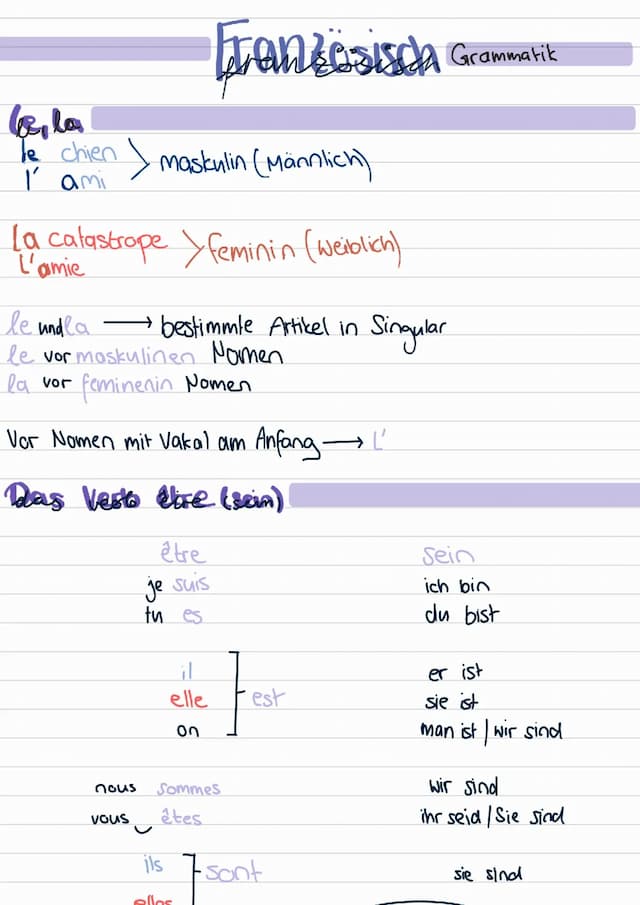 Französisch Grammatik
französisch
le, la
le chien
l' ami
maskulin (Männlich)
la catastrope
L'amie
feminin (weiblich)
le und la → bestimmte Artikel in Singular
le vor maskulinen Nomen
la vor femininenin Nomen
Vor Nomen mit Vakal am Anfang → L'
Das Verb être (sein)
être sein
je suis ich bin
tu es du bist
il er ist
elle est sie ist
on man ist | wir sind
nous sommes wir sind
vous êtes ihr seid / Sie sind
ils sont sie sind
elles